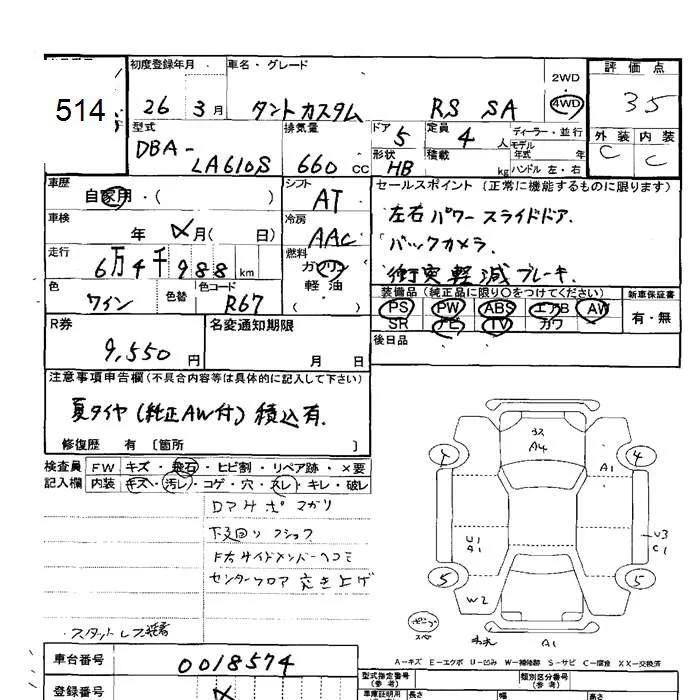 514
初度登録年月
車名・グレード
評価点
26 3月
タントカスタム RS SA
2WD
4WD
35
型式
DBA-
LA610S
排気量
660 CC
ドア 5
形状 HB
定員 4 人
積載 kg
ディーラー・並行
モデル年式 年
ハンドル 左・右
外装 内装
C C
車歴
自家用・( )
シフト
AT
セールスポイント(正常に機能するものに限ります)
左右パワースライドドア.
バックカメラ.
衝突軽減ブレーキ.
車検
年 月( 日)
冷房
AAC
走行
6万4千988km
燃料
ガソリン
軽油
( )
色
ワイン
色替
色コード
R67
装備品(純正品に限り○をつけてください)
新車保証書
PS PW ABS エアB AW
有・無
SR ナビ TV カワ
後日品
R券
9,550円
名変通知期限
月 日
注意事項申告欄(不具合内容等は具体的に記入して下さい)
夏タイヤ(純正AW付)積込有.
修復歴 有〔箇所 〕
検査員 FW キズ・飛石・ヒビ割・リペア跡・×要
記入欄 内装 キズ・汚レ・コゲ・穴・スレ・キレ・破レ
下回り
F右サイドメンバーヘコミ
センターフロア突き上げ
スタットレス装着
A4
4 A1 4
U1
A1
U3
C1
5 5
W2
A1
A-キズ E-エクボ U-凹み W-補修跡 S-サビ C-腐食 XX-交換済
車台番号
0018574
登録番号
型式指定番号
(参考)
類別区分番号
(参考)
車庫証明用
長さ 幅 高さ